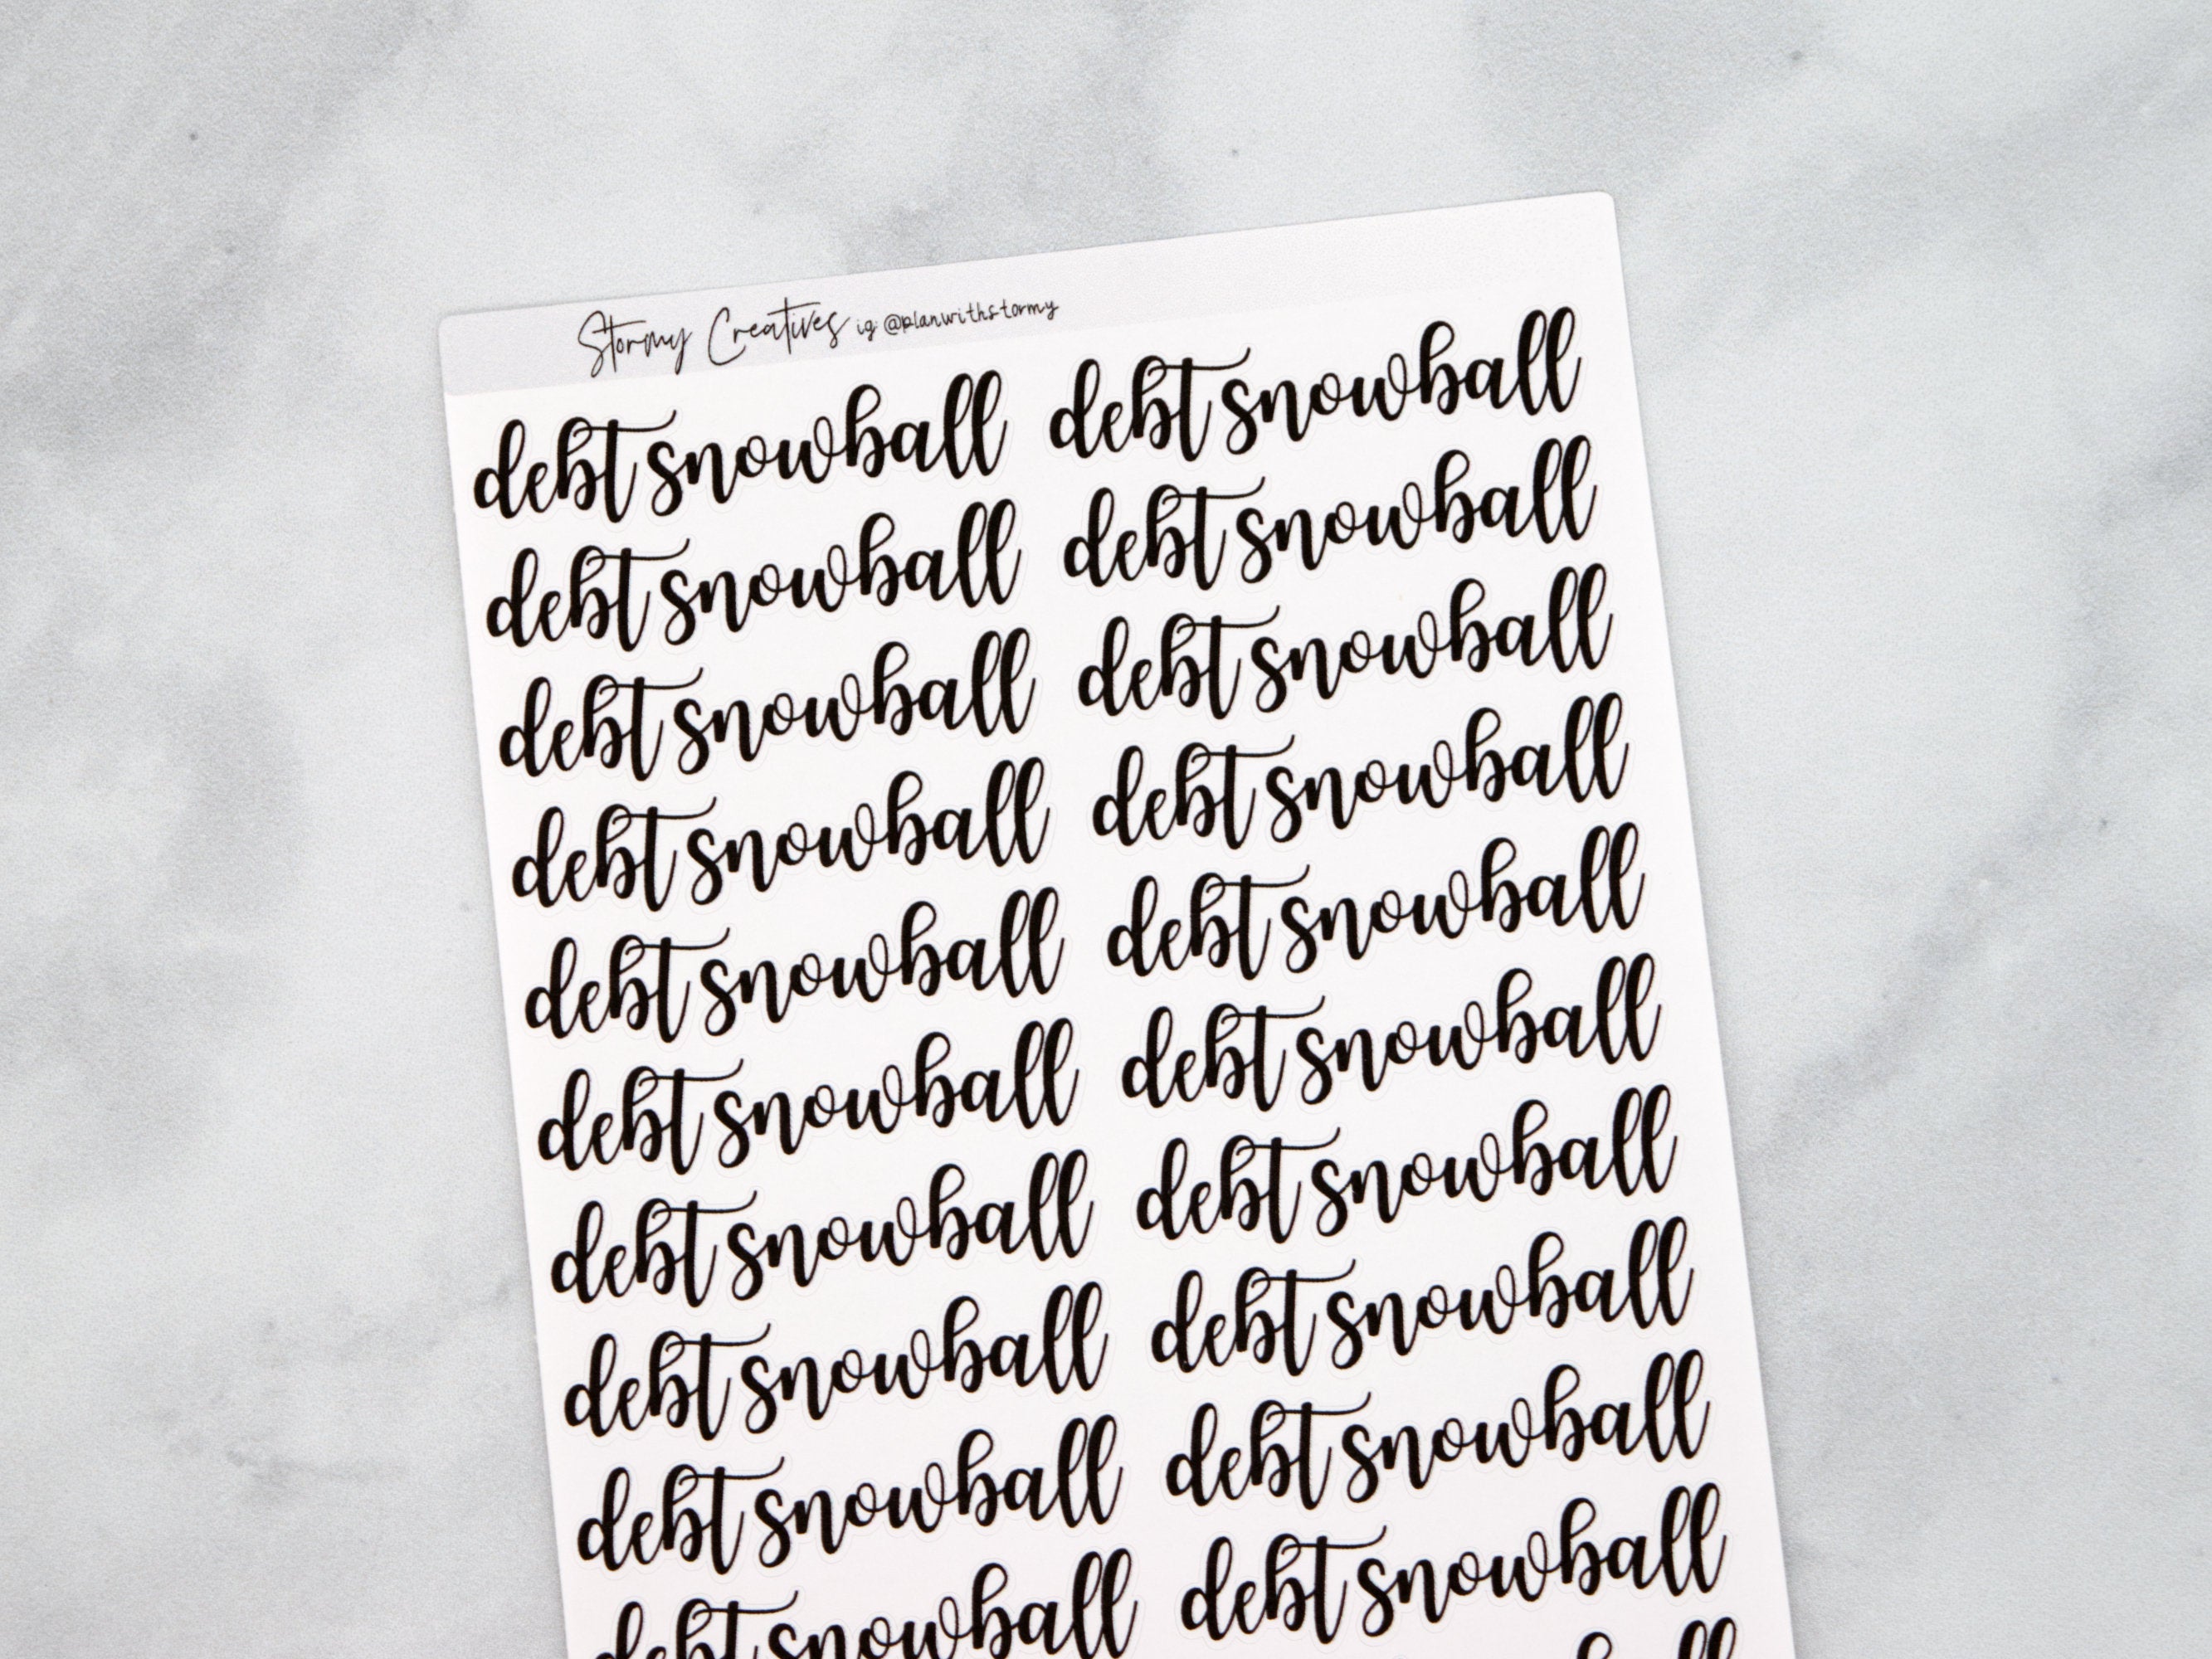 Stormy Creatives ig: @planwithstormy
debt snowball debt snowball
debt snowball debt snowball
debt snowball debt snowball
debt snowball debt snowball
debt snowball debt snowball
debt snowball debt snowball
debt snowball debt snowball
debt snowball debt snowball
debt snowball debt snowball
debt snowball debt snowball